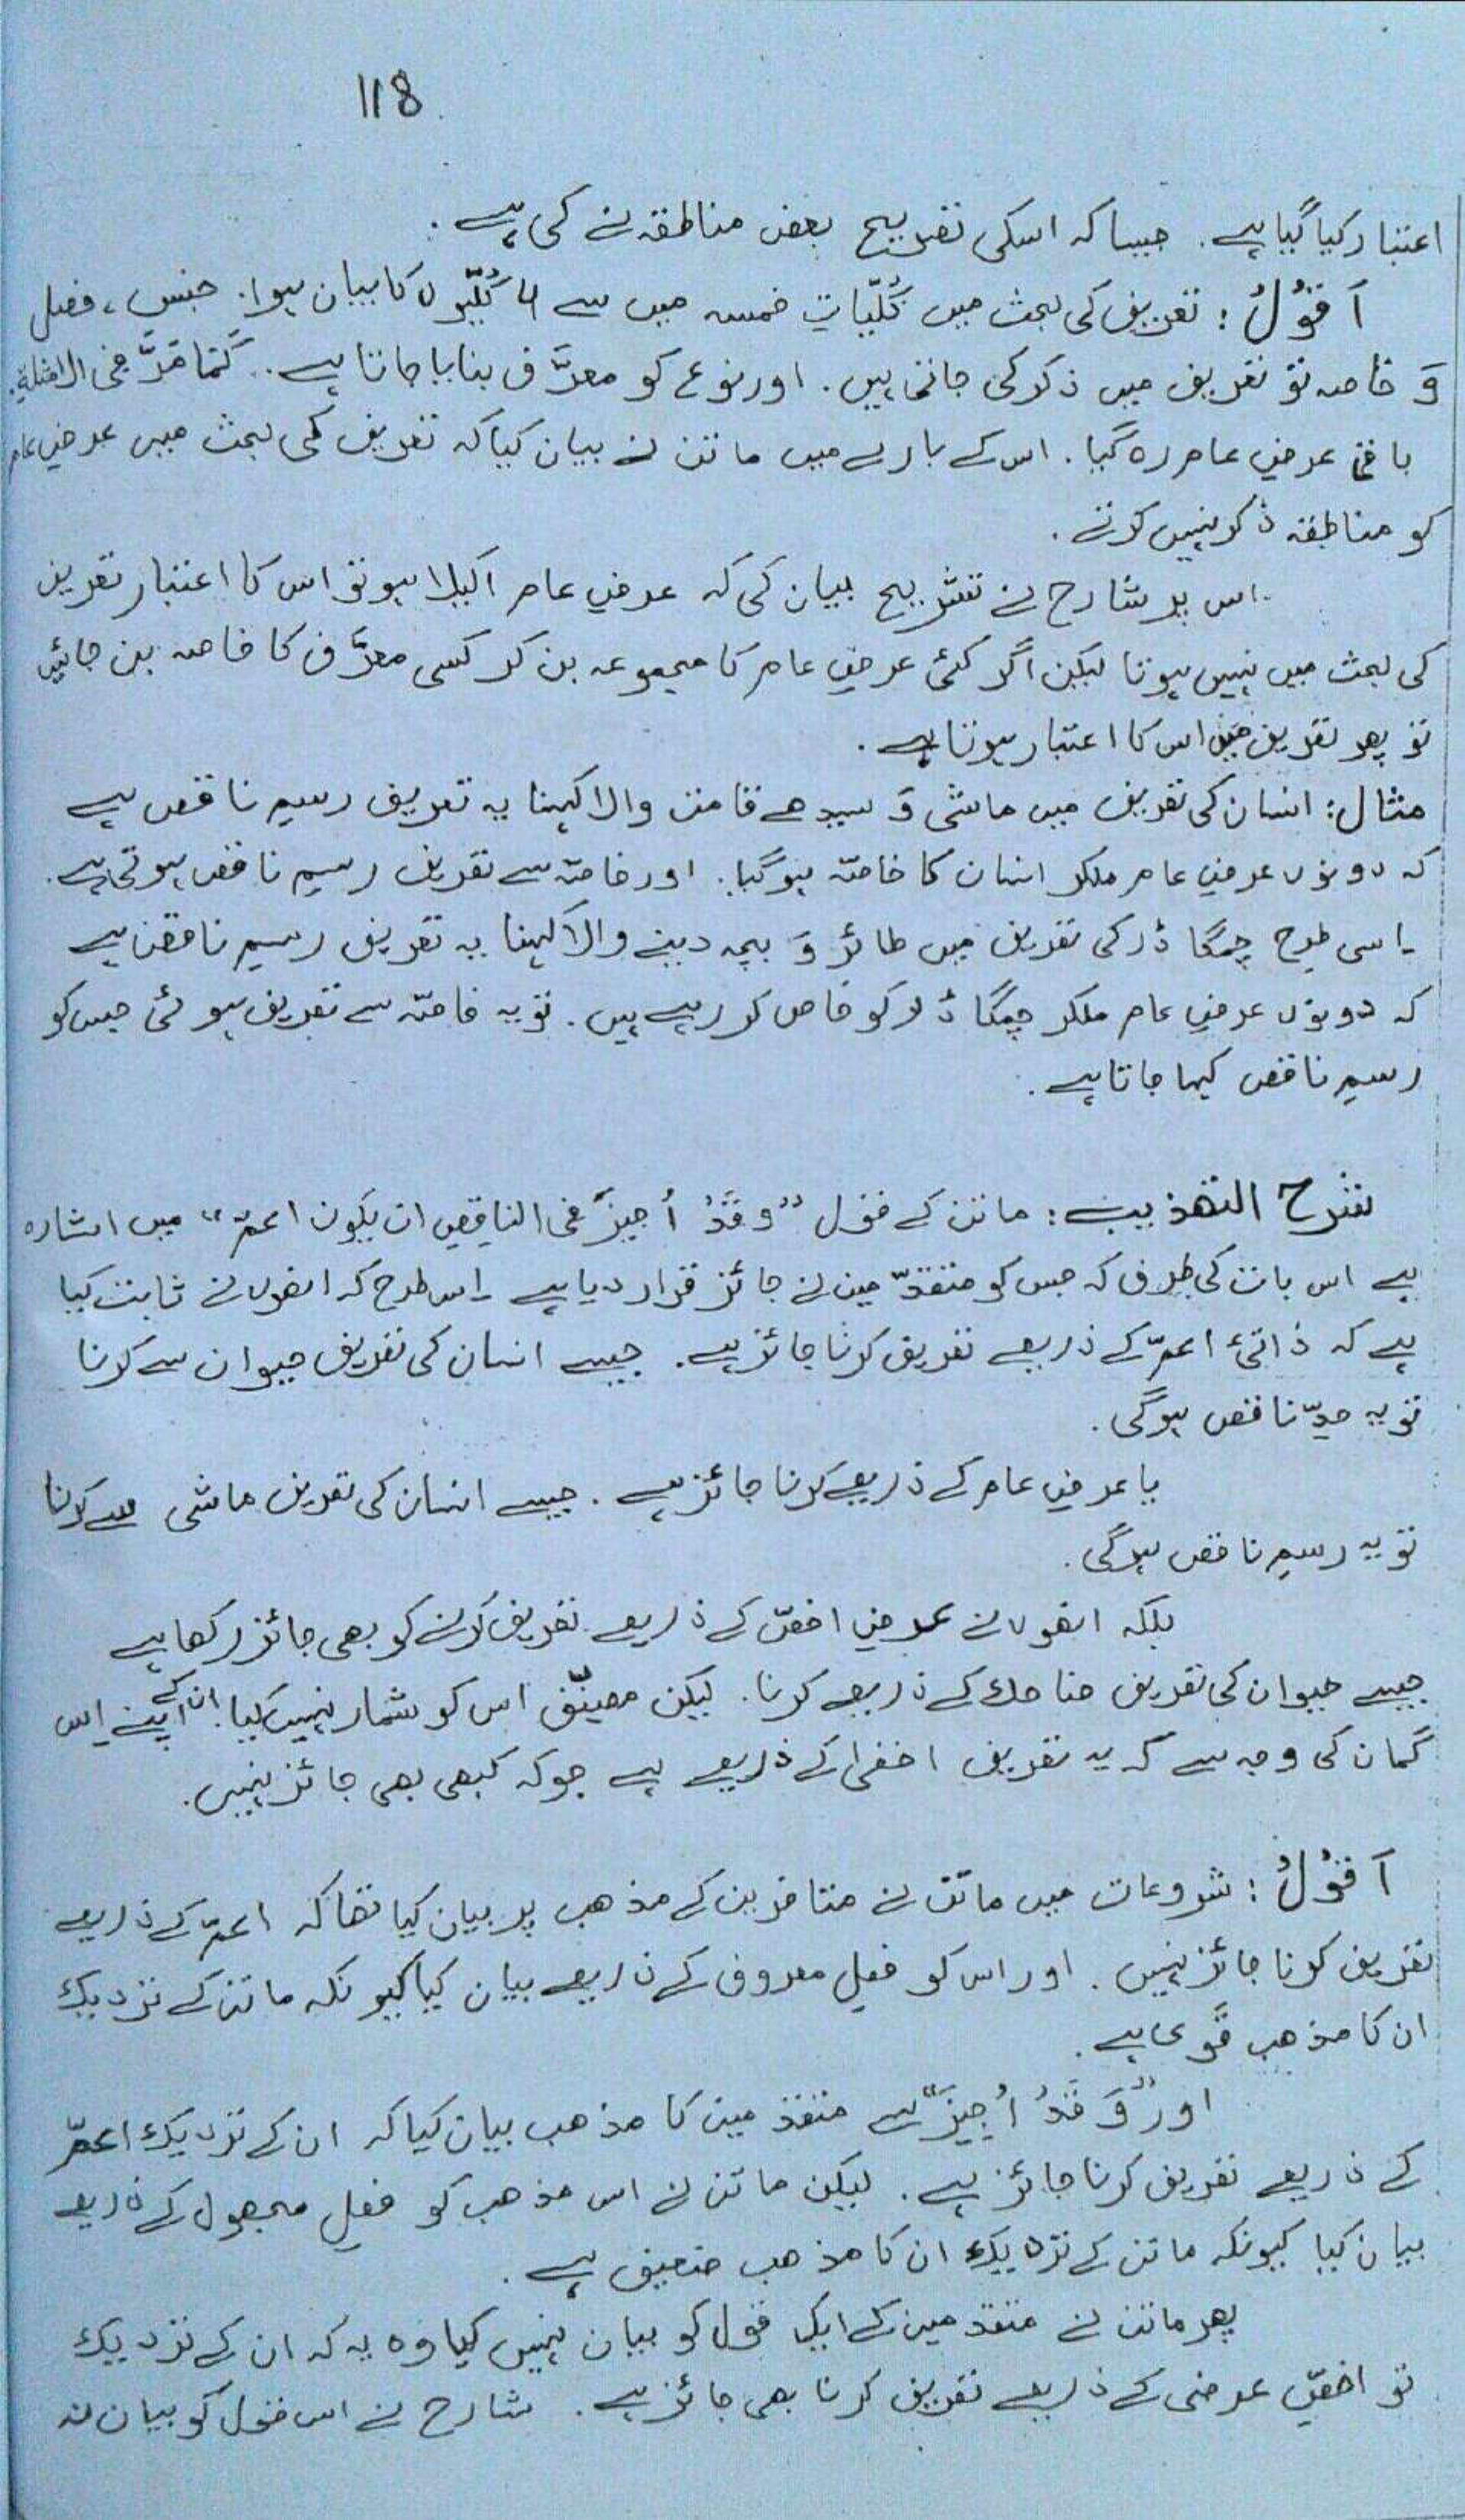 118
اعتبار کیا گیا ہے. جیسا کہ اسکی تصریح بعض مناطقہ نے کی ہے.
اَقُوْلُ: تعریف کی بحث میں کُلّیّاتِ خمسہ میں سے 4 کُلّیّوں کا بیان ہوا. جنس، فصل
وَ خاصہ تو تعریف میں ذکر کی جاتی ہیں. اور نوع کو معرَّف بنایا جاتا ہے. کَمَا مَرَّ فی الامثلۃِ.
باقی عرضِ عام رہ گیا. اس کے بارے میں ماتن نے بیان کیا کہ تعریف کی بحث میں عرضِ عام
کو مناطقہ ذکر نہیں کرتے.
اس پر شارح نے تشریح بیان کی کہ عرضِ عام اکیلا ہو تو اس کا اعتبار تعریف
کی بحث میں نہیں ہوتا لیکن اگر کئی عرضِ عام کا مجموعہ بن کر کسی معرَّف کا خاصہ بن جائیں
تو پھر تعریف میں اس کا اعتبار ہوتا ہے.
مثال: انسان کی تعریف میں ماشی وَ سیدھے قامت والا کہنا یہ تعریف رسمِ ناقص ہے
کہ دونوں عرضِ عام ملکر انسان کا خاصّہ ہو گیا. اور خاصّہ سے تعریف رسمِ ناقص ہوتی ہے.
اسی طرح چمگادڑ کی تعریف میں طائر وَ بچہ دینے والا کہنا یہ تعریف رسمِ ناقص ہے
کہ دونوں عرضِ عام ملکر چمگادڑ کو خاص کر رہے ہیں. تو یہ خاصّہ سے تعریف ہوئی جس کو
رسمِ ناقص کہا جاتا ہے.
شرح التھذیب: ماتن کے قول "وقَدْ اُجِیْزَ فی الناقِصِ ان یکون اعمّ" میں اشارہ
ہے اس بات کی طرف کہ جس کو متقدّمین نے جائز قرار دیا ہے اس طرح کہ انھوں نے ثابت کیا
ہے کہ ذاتیٔ اعمّ کے ذریعے تعریف کرنا جائز ہے. جیسے انسان کی تعریف حیوان سے کرنا
تو یہ حدِّ ناقص ہوگی.
یا عرضِ عام کے ذریعے کرنا جائز ہے. جیسے انسان کی تعریف ماشی سے کرنا
تو یہ رسمِ ناقص ہوگی.
بلکہ انھوں نے عرضِ اخصّ کے ذریعے تعریف کرنے کو بھی جائز رکھا ہے
جیسے حیوان کی تعریف ضاحک کے ذریعے کرنا. لیکن مصنِّف اس کو شمار نہیں کیا ان کے اپنے اِس
گمان کی وجہ سے کہ یہ تعریف اخفیٰ کے ذریعے ہے جوکہ کبھی بھی جائز نہیں.
اَقُوْلُ: شروعات میں ماتن نے متاخرین کے مذھب پر بیان کیا تھا کہ اعمّ کے ذریعے
تعریف کرنا جائز نہیں. اور اس کو فعلِ معروف کے ذریعے بیان کیا کیونکہ ماتن کے نزدیک
ان کا مذھب قَوی ہے.
اور "وَ قَدْ اُجِیْزَ" سے متقدمین کا مذھب بیان کیا کہ ان کے نزدیک اعمّ
کے ذریعے تعریف کرنا جائز ہے. لیکن ماتن نے اس مذھب کو فعلِ مجھول کے ذریعے
بیان کیا کیونکہ ماتن کے نزدیک ان کا مذھب ضعیف ہے.
پھر ماتن نے متقدمین کے ایک قول کو بیان نہیں کیا وہ یہ کہ ان کے نزدیک
تو اخصِّ عرضی کے ذریعے تعریف کرنا بھی جائز ہے. شارح نے اس قول کو بیان نہ